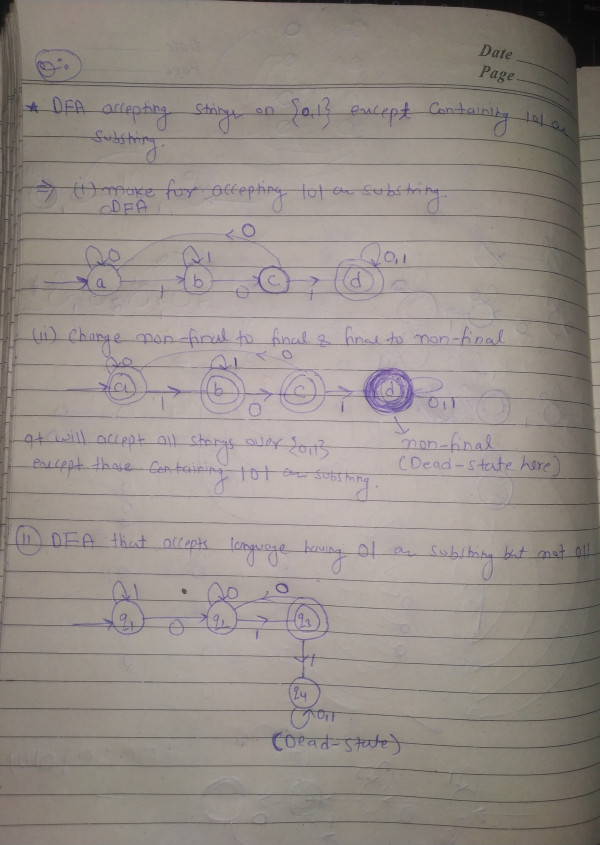 Date
Page
Q:-
* DFA accepting strings on {0,1} except Containing 101 as
substring.
⇒ (i) make for accepting 101 as substring.
DFA
0
0 1 0,1
a b c d
1 0 1
(ii) Change non-final to final & final to non-final
0 1 0
a b c d
1 0 1 0,1
It will accept all strings over {0,1}
non-final
except those Containing 101 as substring.
(Dead-state here)
(II) DFA that accepts language having 01 as substring but not 011
1 0 0
q1 q2 q3
0 1
1
q4
0,1
(Dead-state)